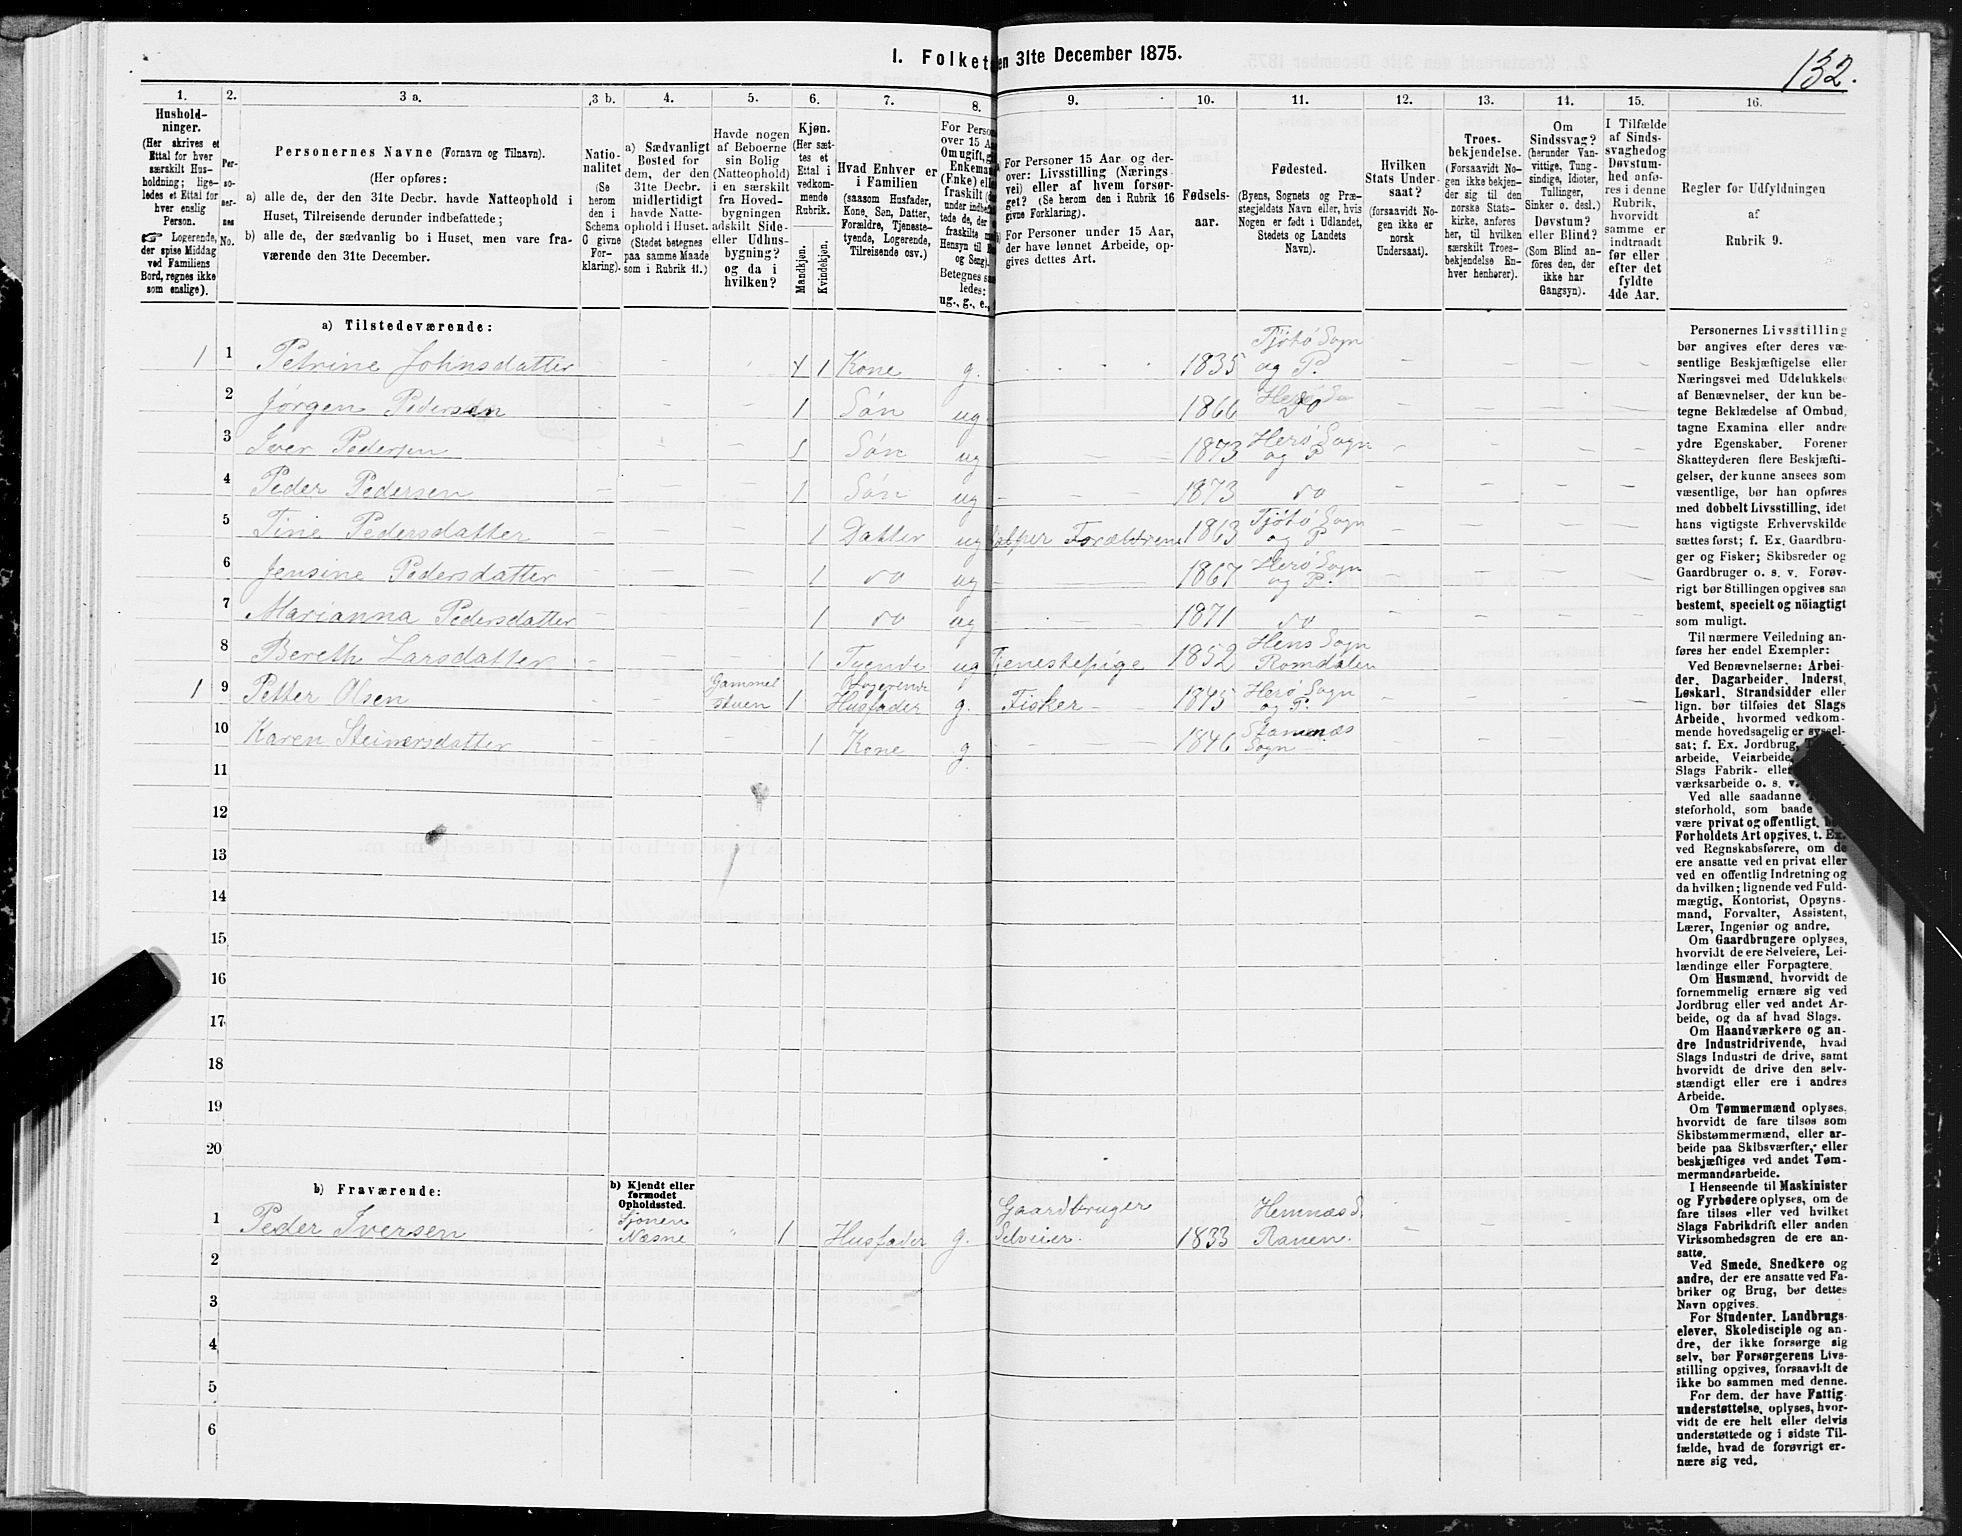 132.
I. Folket en 31te December 1875.
1.
2.
3 a.
3 b.
4.
5.
6.
7.
8.
9.
10.
11.
12.
13.
14.
15.
16.
Hushold-
ninger.
(Her skrives et
Ettal for hver
særskilt Hus-
holdning; lige-
ledes et Ettal for
hver enslig
Person.
☞ Logerende,
der spise Middag
ved Familiens
Bord, regnes ikke
som enslige).
Per-
so-
ner-
nes
No.
Personernes Navne (Fornavn og Tilnavn).
(Her opføres:
a) alle de, der den 31te Decbr. havde Natteophold i
Huset, Tilreisende derunder indbefattede;
b) alle de, der sædvanlig bo i Huset, men vare fra-
værende den 31te December.
Natio-
nalitet
(Se
herom
den i
Schema
G givne
For-
klaring).
a) Sædvanligt
Bosted for
dem, der den
31te Decbr.
midlertidigt
havde Natte-
ophold i Huset.
(Stedet betegnes
paa samme Maade
som i Rubrik 11.)
Havde nogen
af Beboerne
sin Bolig
(Natteophold)
i en særskilt
fra Hoved-
bygningen
adskilt Side-
eller Udhus-
bygning?
og da i
hvilken?
Kjøn.
(Her sæt-
tes et
Ettal i
vedkom-
mende
Rubrik.
Mandkjøn.
Kvindekjøn.
Hvad Enhver er
i Familien
(saasom Husfader,
Kone, Søn, Datter,
Forældre, Tjeneste-
tyende, Logerende,
Tilreisende osv.)
For Person
over 15 Aa
Om ugift, g
Enkeman
(Enke) ell
fraskilt (
under indbef
tede de, der e
fraskilte m
Hensyn til B
og Seng).
Betegnes sa
ledes:
ug., g., e.,
For Personer 15 Aar og der-
over: Livsstilling (Nærings-
vei) eller af hvem forsør-
get? (Se herom den i Rubrik 16
givne Forklaring).
For Personer under 15 Aar,
der have lønnet Arbeide, op-
gives dettes Art.
Fødsels-
aar.
Fødested.
(Byens, Sognets og Præ-
stegjeldets Navn eller, hvis
Nogen er født i Udlandet,
Stedets og Landets
Navn).
Hvilken
Stats Under-
saat?
(forsaavidt No-
gen ikke er
norsk
Undersaat).
Troes-
bekjendelse.
(Forsaavidt No-
gen ikke bekjen-
der sig til den
norske Stats-
kirke, anføres
her, til hvilken
særskilt Troes-
bekjendelse En-
hver henhører).
Om
Sindssvag?
(herunder Van-
vittige, Tung-
sindige, Idioter,
Tullinger,
Sinker o. desl.)
Døvstum?
eller Blind?
(Som Blind an-
føres den, der
ikke har
Gangsyn).
I Tilfælde
af Sinds-
svaghed og
Døvstum-
hed anfø-
res i denne
Rubrik,
hvorvidt
samme er
indtraadt
før eller
efter det
fyldte
4de Aar.
Regler for Udfyldningen
af
Rubrik 9.
a) Tilstedeværende:
1 1 Petrine Johnsdatter 1 Kone g. 1835 Tjøtø Sogn og P.
2 Jørgen Pedersen 1 Søn ug 1866 do
3 Iver Pedersen 1 Søn ug 1873 Herø Sogn og P
4 Peder Pedersen 1 Søn ug 1873 do
5 Tine Pedersdatter 1 Datter ug Forældrene 1863 Tjøtø Sogn og P
6 Jensine Pedersdatter 1 do ug 1867 Herø Sogn og P.
7 Marianna Pedersdatter 1 do ug 1871 do
8 Bereth Larsdatter 1 Tyende ug Tjenestepige 1852 Hens Sogn Romdalen
1 9 Petter Olsen Gammel stuen 1 Logerende Husfader g. Fisker 1845 Herø Sogn og P.
10 Karen Steinersdatter 1 Kone g 1846 Stamnæs Sogn
11
12
13
14
15
16
17
18
19
20
b) Fraværende:
b) Kjendt eller
formodet
Opholdssted.
1 Peder Iversen Sjonen Næsne 1 Husfader g. Gaardbruger Selveier. 1833 Hemnæs Ranen.
2
3
4
5
6
Personernes Livsstilling
bør angives efter deres væ-
sentlige Beskjæftigelse eller
Næringsvei med Udelukkelse
af Benævnelser, der kun be-
tegne Beklædelse af Ombud,
tagne Examina eller andre
ydre Egenskaber. Forener
Skatteyderen flere Beskjæfti-
gelser, der kunne ansees som
væsentlige, bør han opføres
med dobbelt Livsstilling, idet
hans vigtigste Erhvervskilde
sættes først; f. Ex. Gaardbru-
ger og Fisker; Skibsreder og
Gaardbruger o. s. v. Forøv-
rigt bør Stillingen opgives saa
bestemt, specielt og nöiagtigt
som muligt.
Til nærmere Veiledning an-
føres her endel Exempler:
Ved Benævnelserne: Arbei-
der, Dagarbeider, Inderst,
Løskarl, Strandsidder eller
lign. bør tilføies det Slags
Arbeide, hvormed vedkom-
mende hovedsagelig er syssel-
sat; f. Ex. Jordbrug,
arbeide, Veiarbeide,
Slags Fabrik- eller
værksarbeide o. s. v.
Ved alle saadanne
steforhold, som baade
være privat og offentligt,
Forholdets Art opgives, t. Ex.
ved Regnskabsførere, om de
ere ansatte ved en privat eller
ved en offentlig Indretning og
da hvilken; lignende ved Fuld-
mægtig, Kontorist, Opsyns-
mand, Forvalter, Assistent,
Lærer, Ingeniør og andre.
Om Gaardbrugere oplyses,
hvorvidt de ere Selveiere, Lei-
lændinge eller Forpagtere.
Om Husmænd, hvorvidt de
fornemmelig ernære sig ved
Jordbrug eller ved andet Ar-
beide, og da af hvad Slags.
Om Haandværkere og an-
dre Industridrivende, hvad
Slags Industri de drive, samt
hvorvidt de drive den selv-
stændigt eller ere i andres
Arbeide.
Om Tømmermænd oplyses,
hvorvidt de fare tilsøs som
Skibstømmermænd, eller ar-
beide paa Skibsværfter, eller
beskjæftiges ved andet Tøm-
mermandsarbeide.
I Henseende til Maskinister
og Fyrbødere oplyses, om de
fare tilsøs eller ved hvilket
Slags Fabrikdrift eller anden
Virksomhedsgren de ere an-
satte.
Ved Smede, Snedkere og
andre, der ere ansatte ved Fa-
briker og Brug, bør dettes
Navn opgives.
For Studenter, Landbrugs-
elever, Skoledisciple og an-
dre, der ikke forsørge sig
selv, bør Forsørgerens Livs-
stilling opgives, forsaavidt de
ikke bo sammen med denne.
For dem, der have Fattig-
understøttelse, oplyses, hvor-
vidt de ere helt eller delvis
understøttede og i sidste Til-
fælde, hvad de forøvrigt er-
nære sig ved.